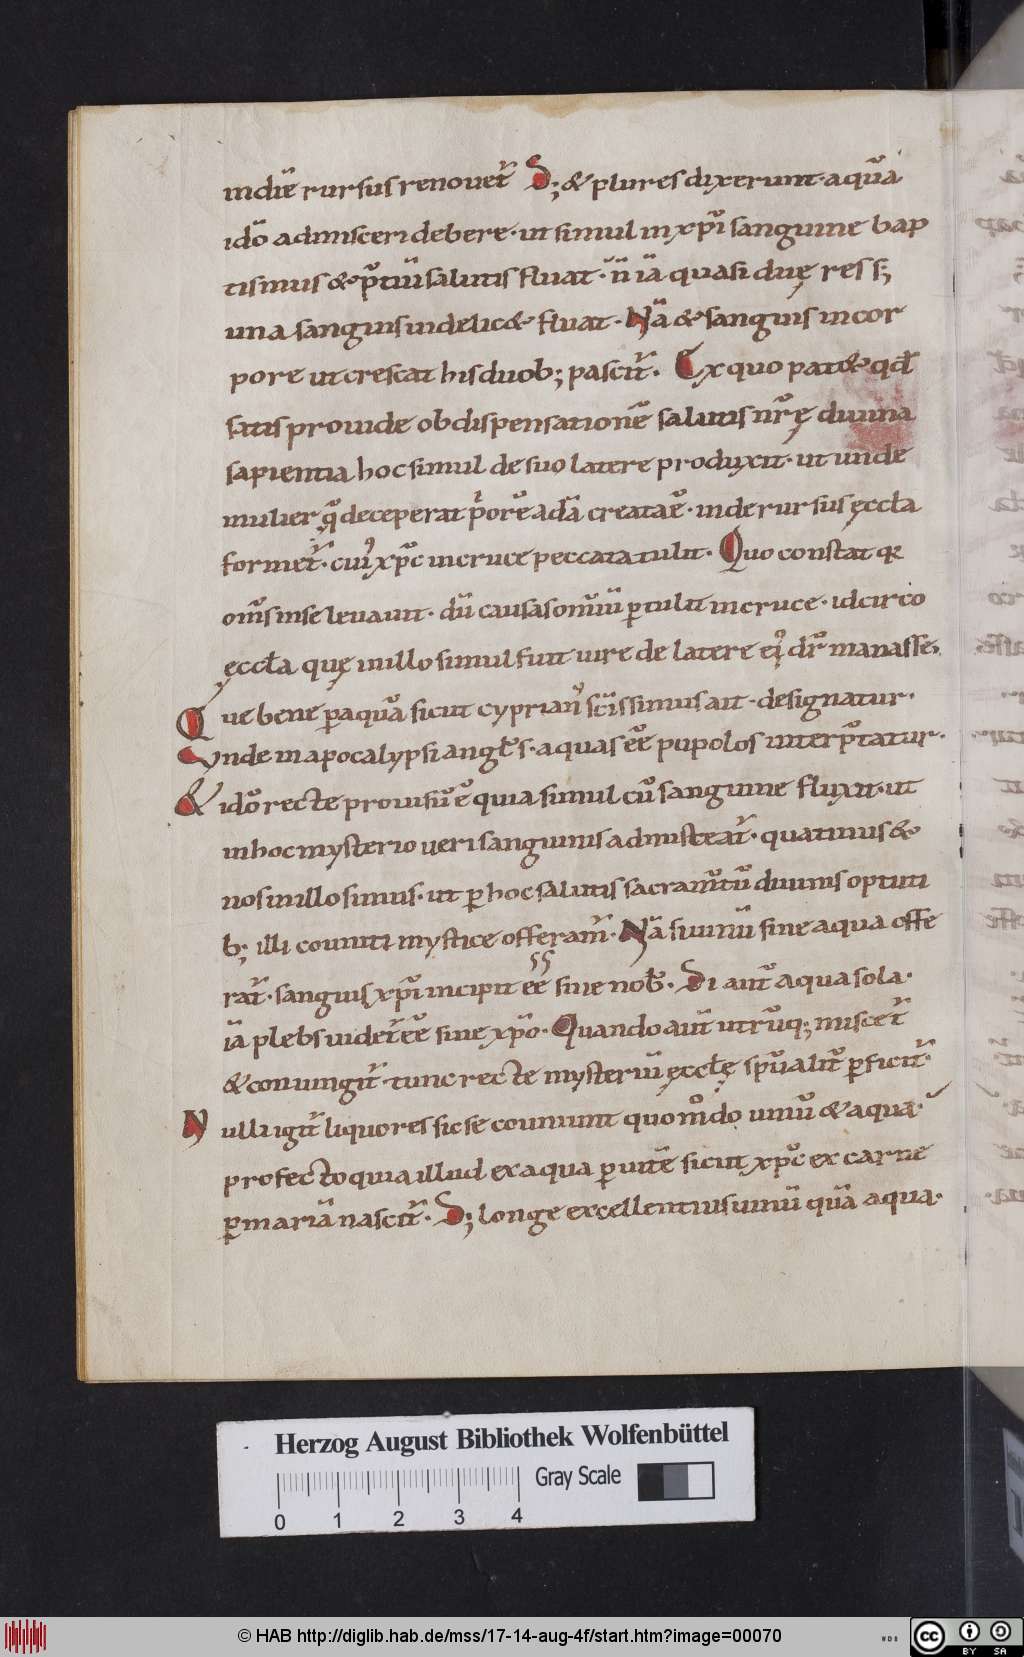 indiē rursus renouet᷑ S; & plures dixerunt · aquā
idō admisceri debere · ut simul in xp̄i sanguine bap
tismus & p̄tiū salutis fluat · n̄ iā quasi duę res s;
una sanguis uidelic& fluat · Nā & sanguis in cor
pore ut crescat his duob; pascit᷑ · Ex quo pat& qđ
satis prouide ob dispensationē salutis nr̄ę diuina
sapientia hoc simul de suo latere produxit · ut unde
mulier q̄ deceperat p̄orē adā creata ē · inde rursus ęccła
formet᷑ · cui᷒ xp̄c in cruce peccata tulit · Quo constat qr
om̄s in se leuauit · dū causas omiū ꝑtulit in cruce · idcirco
ęccła quę in illo simul fuit uire de latere ei᷒ dr̄ manasse ·
Que bene ꝑ aquā sicut cyprian᷒ sc̄issimus ait · designatur ·
Unde in apocalypsi angłs · aquas ēe pupolos interp̄tatur ·
& idō recte prouisū ē quia simul cū sanguine fluxit · ut
in hoc mysterio ueri sanguinis admisceat᷑ · quatinus &
nos in illo simus · ut ꝑ hoc salutis sacram̄tū diuinis optuti
b; illi couniti mystice offeram᷑ · Nā si uinū sine aqua offe
rat᷑ · sanguis xp̄i incipit ēe sine nob᷒ · Si aut̄ aqua sola ·
iā plebs uidet᷑ ēe sine xp̄o · Quando aut̄ utrūq; miscet᷑
& coniungit᷑ · tunc recte mysteriū ęcclę sp̄ualit̄ ꝑficit᷑ ·
Nulli igit᷑ liquores sic se couniunt quom̄do uinū & aqua ·
profecto quia illud ex aqua ꝑ uitē sicut xp̄c ex carne
ꝑ mariā nascit᷑ · S; longe excellentius uinū quā aqua ·
Herzog August Bibliothek Wolfenbüttel
Gray Scale
0 1 2 3 4
© HAB http://diglib.hab.de/mss/17-14-aug-4f/start.htm?image=00070
WDB
cc BY SA